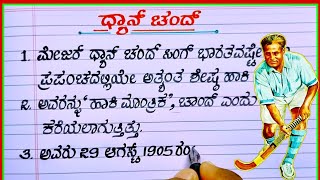 ಧ್ಯಾನ್ ಚಂದ್
1. ಮೇಜರ್ ಧ್ಯಾನ್ ಚಂದ್ ಸಿಂಗ್ ಭಾರತವಷ್ಟೇ
ಪ್ರಪಂಚದಲ್ಲಿಯೇ ಅತ್ಯಂತ ಶ್ರೇಷ್ಠ ಹಾಕಿ
೭. ಅವರನ್ನು ‘ಹಾಕಿ ಮಾಂತ್ರಿಕ’, ಚಾಂದ್ ಎಂದು
ಕರೆಯಲಾಗುತ್ತಿತ್ತು.
3. ಅವರು 29 ಆಗಸ್ಟ್ 1905 ರಂ